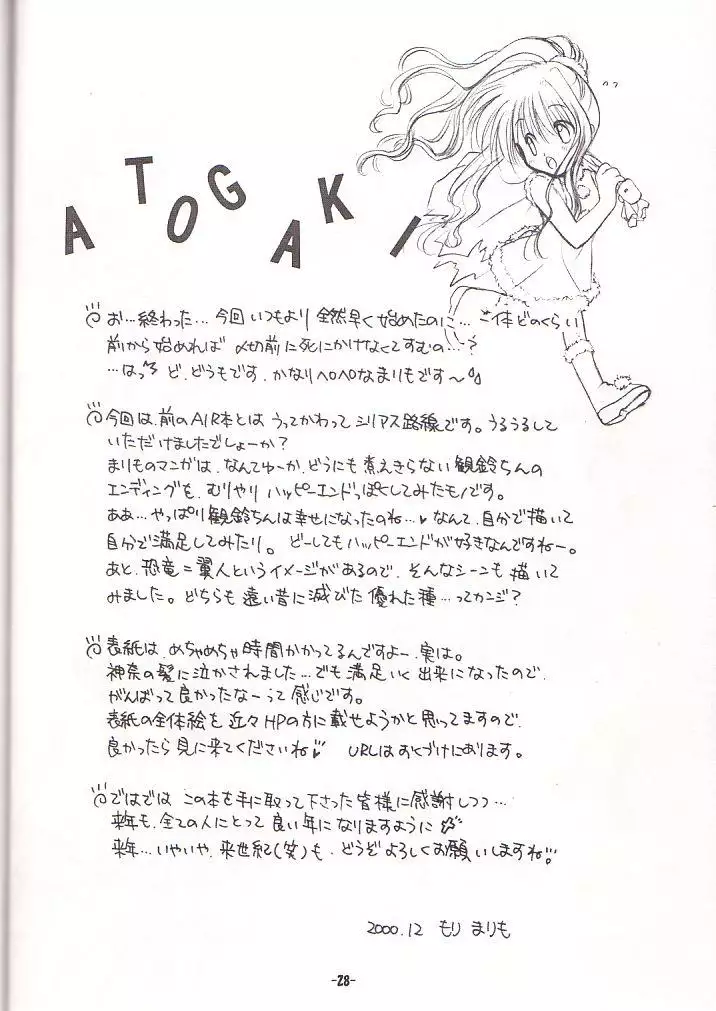 ATOGAKI
お…終わった…今回いつもより全然早く始めたのに…一体どのくらい
前から始めれば〆切前に死にかけなくてすむの…?
…はっ ど、どうもです、かなりヘロヘロなまりもです〜
今回は、前のAIR本とはうってかわってシリアス路線です。うるうるして
いただけましたでしょーか?
まりものマンガは、なんてゆーか、どうにも煮えきらない観鈴ちんの
エンディングを、むりやりハッピーエンドっぽくしてみたもノです。
ああ…やっぱり観鈴ちんは幸せになったのね…♥なんて、自分で描いて
自分で満足してみたり。どーしてもハッピーエンドが好きなんですねー。
あと、恐竜=翼人というイメージがあるので、そんなシーンも描いて
みました。どちらも遠い昔に滅びた優れた種…ってカンジ?
表紙は、めちゃめちゃ時間かかってるんですよー、実は。
神奈の髪に泣かされました…でも満足いく出来になったので、
がんばって良かったなーって感じです。
表紙の全体絵を近々HPの方に載せようかと思ってますので、
良かったら見に来てくださいね♥ URLはおくづけにあります。
ではでは この本を手に取って下さった皆様に感謝しつつ…
来年も、全ての人にとって良い年になりますように
来年…いやいや、来世紀(笑)も、どうぞよろしくお願いしますね!
2000.12 もり まりも
-28-